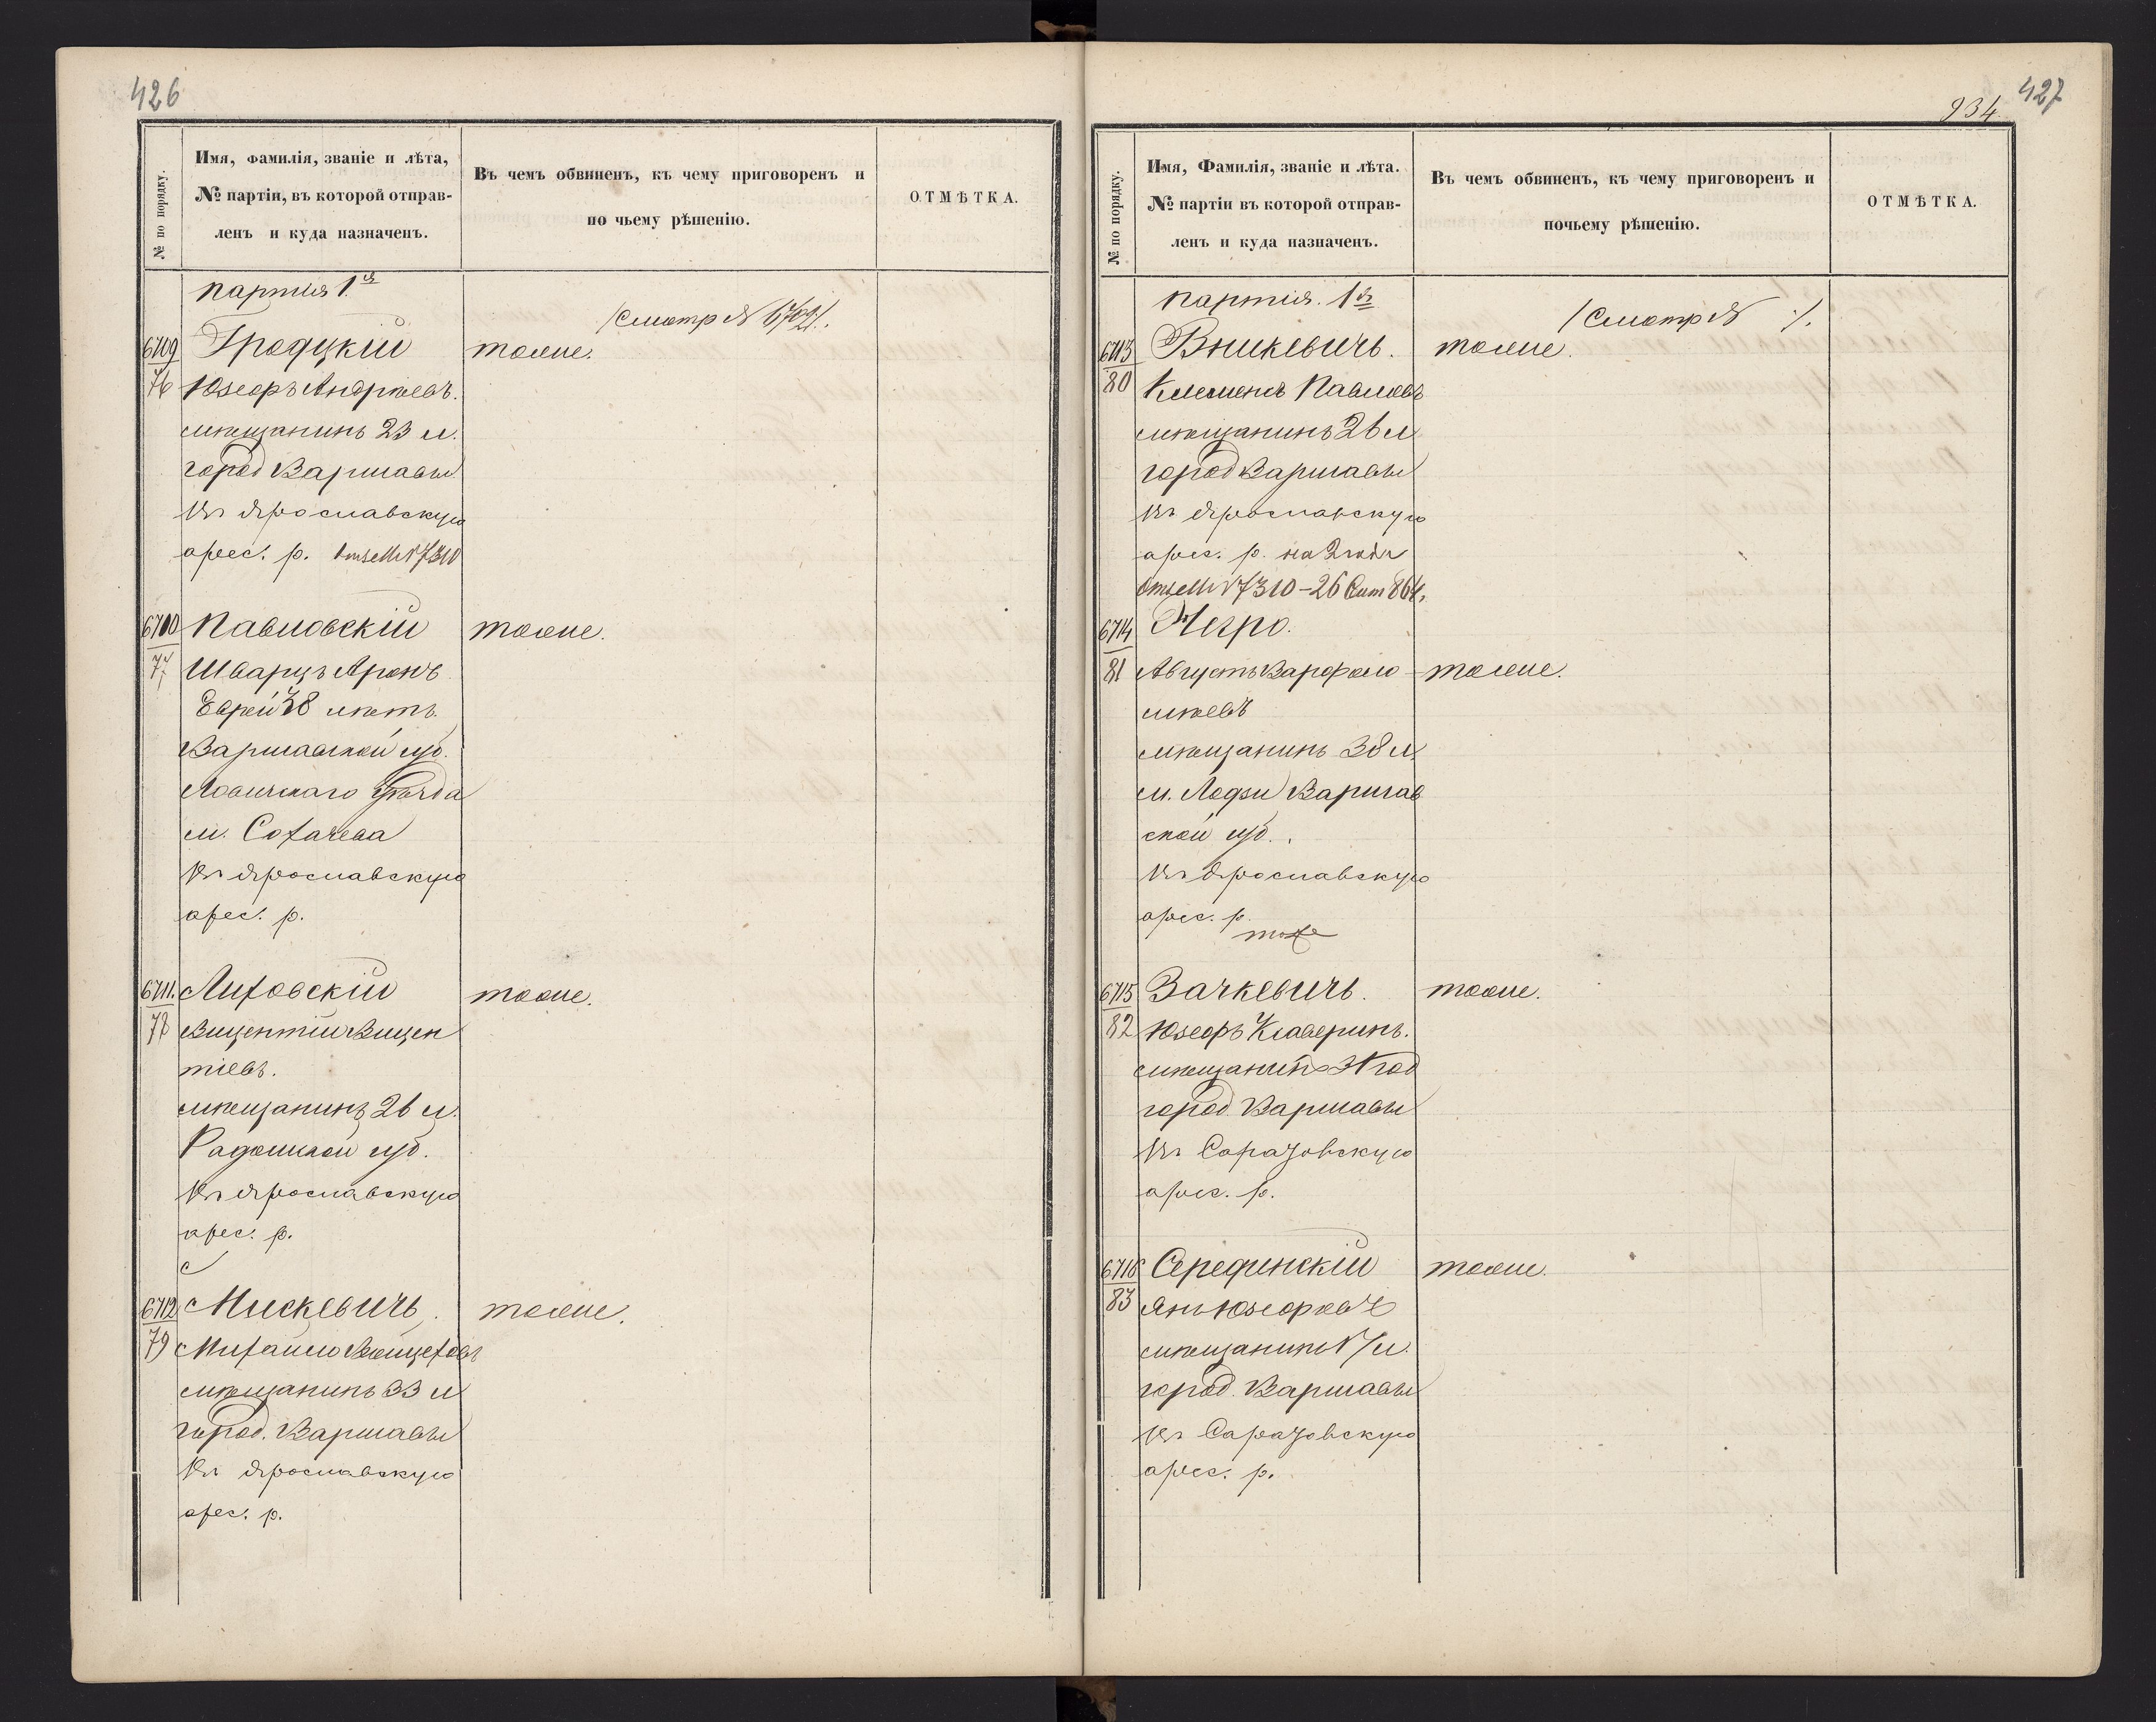 426
№ по порядку.
Имя, Фамилія, званіе и лѣта,
№ партіи, въ которой отправ-
ленъ и куда назначенъ.
Въ чемъ обвиненъ, къ чему приговоренъ и
по чьему рѣшенію.
ОТМѢТКА.
партия 1.я
/Смотр №
6709 Гродцкій тоже.
76 Юзефъ Андрѣевъ.
мѣщанинъ 23 л.
город Варшавы
Въ Ярославскую
арес. р. № 7310
6710 Павловскій тоже.
77 Шварцъ Аронъ
Еврей 38 лѣтъ.
Варшавской губ.
Ловичскаго Уѣзда
м. Сохачева
Въ Ярославскую
арес. р.
6711. Лиховскій тоже.
78 Вицентій Вицен
тіевъ.
мѣщанинъ 26 л.
Радомской губ.
Въ Ярославскую
арес. р.
6712 Мискевичъ. тоже.
79 Михаило
мѣщанинъ 33 л
город. Варшавы
Въ Ярославскую
арес. р.
427
934
№ по порядку.
Имя, Фамилія, званіе и лѣта.
№ партіи въ которой отправ-
ленъ и куда назначенъ.
Въ чемъ обвиненъ, къ чему приговоренъ и
почьему рѣшенію.
ОТМѢТКА.
партія. 1я
/Смотр № /.
6713 тоже.
80 Клеменсъ Павловъ
мѣщанинъ 26 л
город Варшавы
Въ Ярославскую
арес. р. на 2 года
№ 7310 - 26 864,
6714 Негро.
81 Августъ Варфоло тоже.
мѣевъ
мѣщанинъ 38 л.
м. Лодзи Варшав
ской губ.
Въ Ярославскую
арес. р.
тоже
6715 Зачкевичъ. тоже.
82 Юзефъ Ксаверинъ.
мѣщанинъ 31 год
город Варшавы
Въ Саратовскую
арес. р.
6716 Серединскій тоже.
83 Янъ Юзефовъ
мѣщанинъ 17 л.
город. Варшавы
Въ Саратовскую
арес. р.